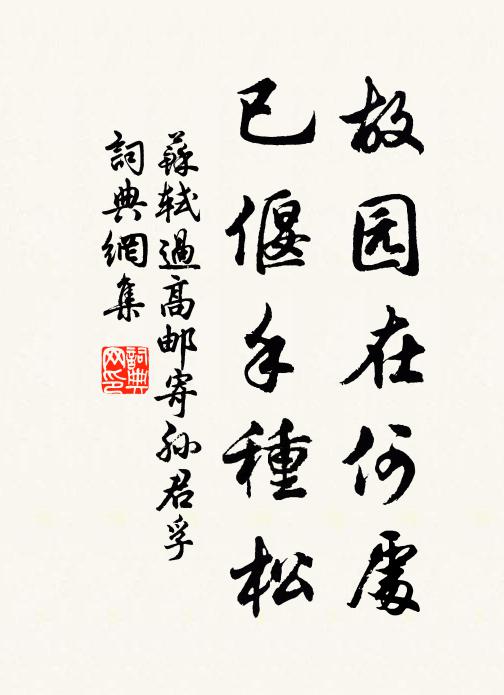 故园在何處
已偃手種松
蘇軾過高邮寄孙君孚
詞典網集
詞典网印